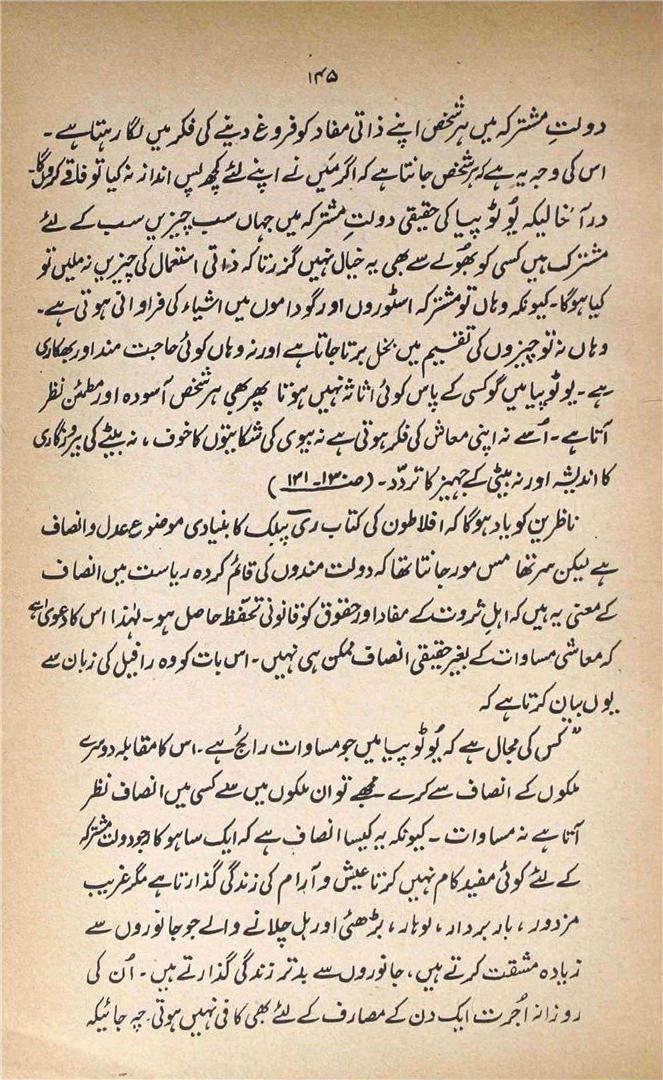 ۱۴۵
دولتِ مشترکہ میں ہر شخص اپنے ذاتی مفاد کو فروغ دینے کی فکر میں لگا رہتا ہے۔
اس کی وجہ یہ ہے کہ ہر شخص جانتا ہے کہ اگر میَں نے اپنے لئے کچھ پس انداز نہ کیا تو فاقے کروں گا۔
درآنحالیکہ یُوٹوپیا کی حقیقی دولتِ مشترکہ میں جہاں سب چیزیں سب کے لئے
مشترک ہیں کسی کو بھُولے سے بھی یہ خیال نہیں گزرتا کہ ذاتی استعمال کی چیزیں نہ ملیں تو
کیا ہوگا۔ کیونکہ وہاں تو مشترکہ اسٹوروں اور گوداموں میں اشیاء کی فراوانی ہوتی ہے۔
وہاں نہ تو چیزوں کی تقسیم میں بخل برتا جاتا ہے اور نہ وہاں کوئی حاجت مند اور بھکاری
ہے۔ یوٹوپیا میں گو کسی کے پاس کوئی اثاثہ نہیں ہوتا پھر بھی ہر شخص آسودہ اور مطمئن نظر
آتا ہے۔ اُسے نہ اپنی معاش کی فکر ہوتی ہے نہ بیوی کی شکایتوں کا خوف، نہ بیٹے کی بیروزگاری
کا اندیشہ اور نہ بیٹی کے جہیز کا تردّد۔ (صـ۱۳۰-۱۳۱)
ناظرین کو یاد ہوگا کہ افلاطون کی کتاب ری پبلک کا بنیادی موضوع عدل و انصاف
ہے لیکن سر تھامس مور جانتا تھا کہ دولت مندوں کی قائم کردہ ریاست میں انصاف
کے معنی یہ ہیں کہ اہلِ ثروت کے مفاد اور حقوق کو قانونی تحفّظ حاصل ہو۔ لہٰذا اس کا دعویٰ ہے
کہ معاشی مساوات کے بغیر حقیقی انصاف ممکن ہی نہیں۔ اس بات کو وہ رافیل کی زبان سے
یوں بیان کرتا ہے کہ
"کس کی مجال ہے کہ یُوٹوپیا میں جو مساوات رائج ہے۔ اس کا مقابلہ دوسرے
ملکوں کے انصاف سے کرے۔ مجھے تو ان ملکوں میں سے کسی میں انصاف نظر
آتا ہے نہ مساوات۔ کیونکہ یہ کیسا انصاف ہے کہ ایک ساہوکار جو دولتِ مشترکہ
کے لئے کوئی مفید کام نہیں کرتا عیش و آرام کی زندگی گذارتا ہے مگر غریب
مزدور، بار بردار، لوہار، بڑھئی اور ہل چلانے والے جو جانوروں سے
زیادہ مشقت کرتے ہیں، جانوروں سے بدتر زندگی گذارتے ہیں۔ اُن کی
روزانہ اُجرت ایک دن کے مصارف کے لئے بھی کافی نہیں ہوتی چہ جائیکہ